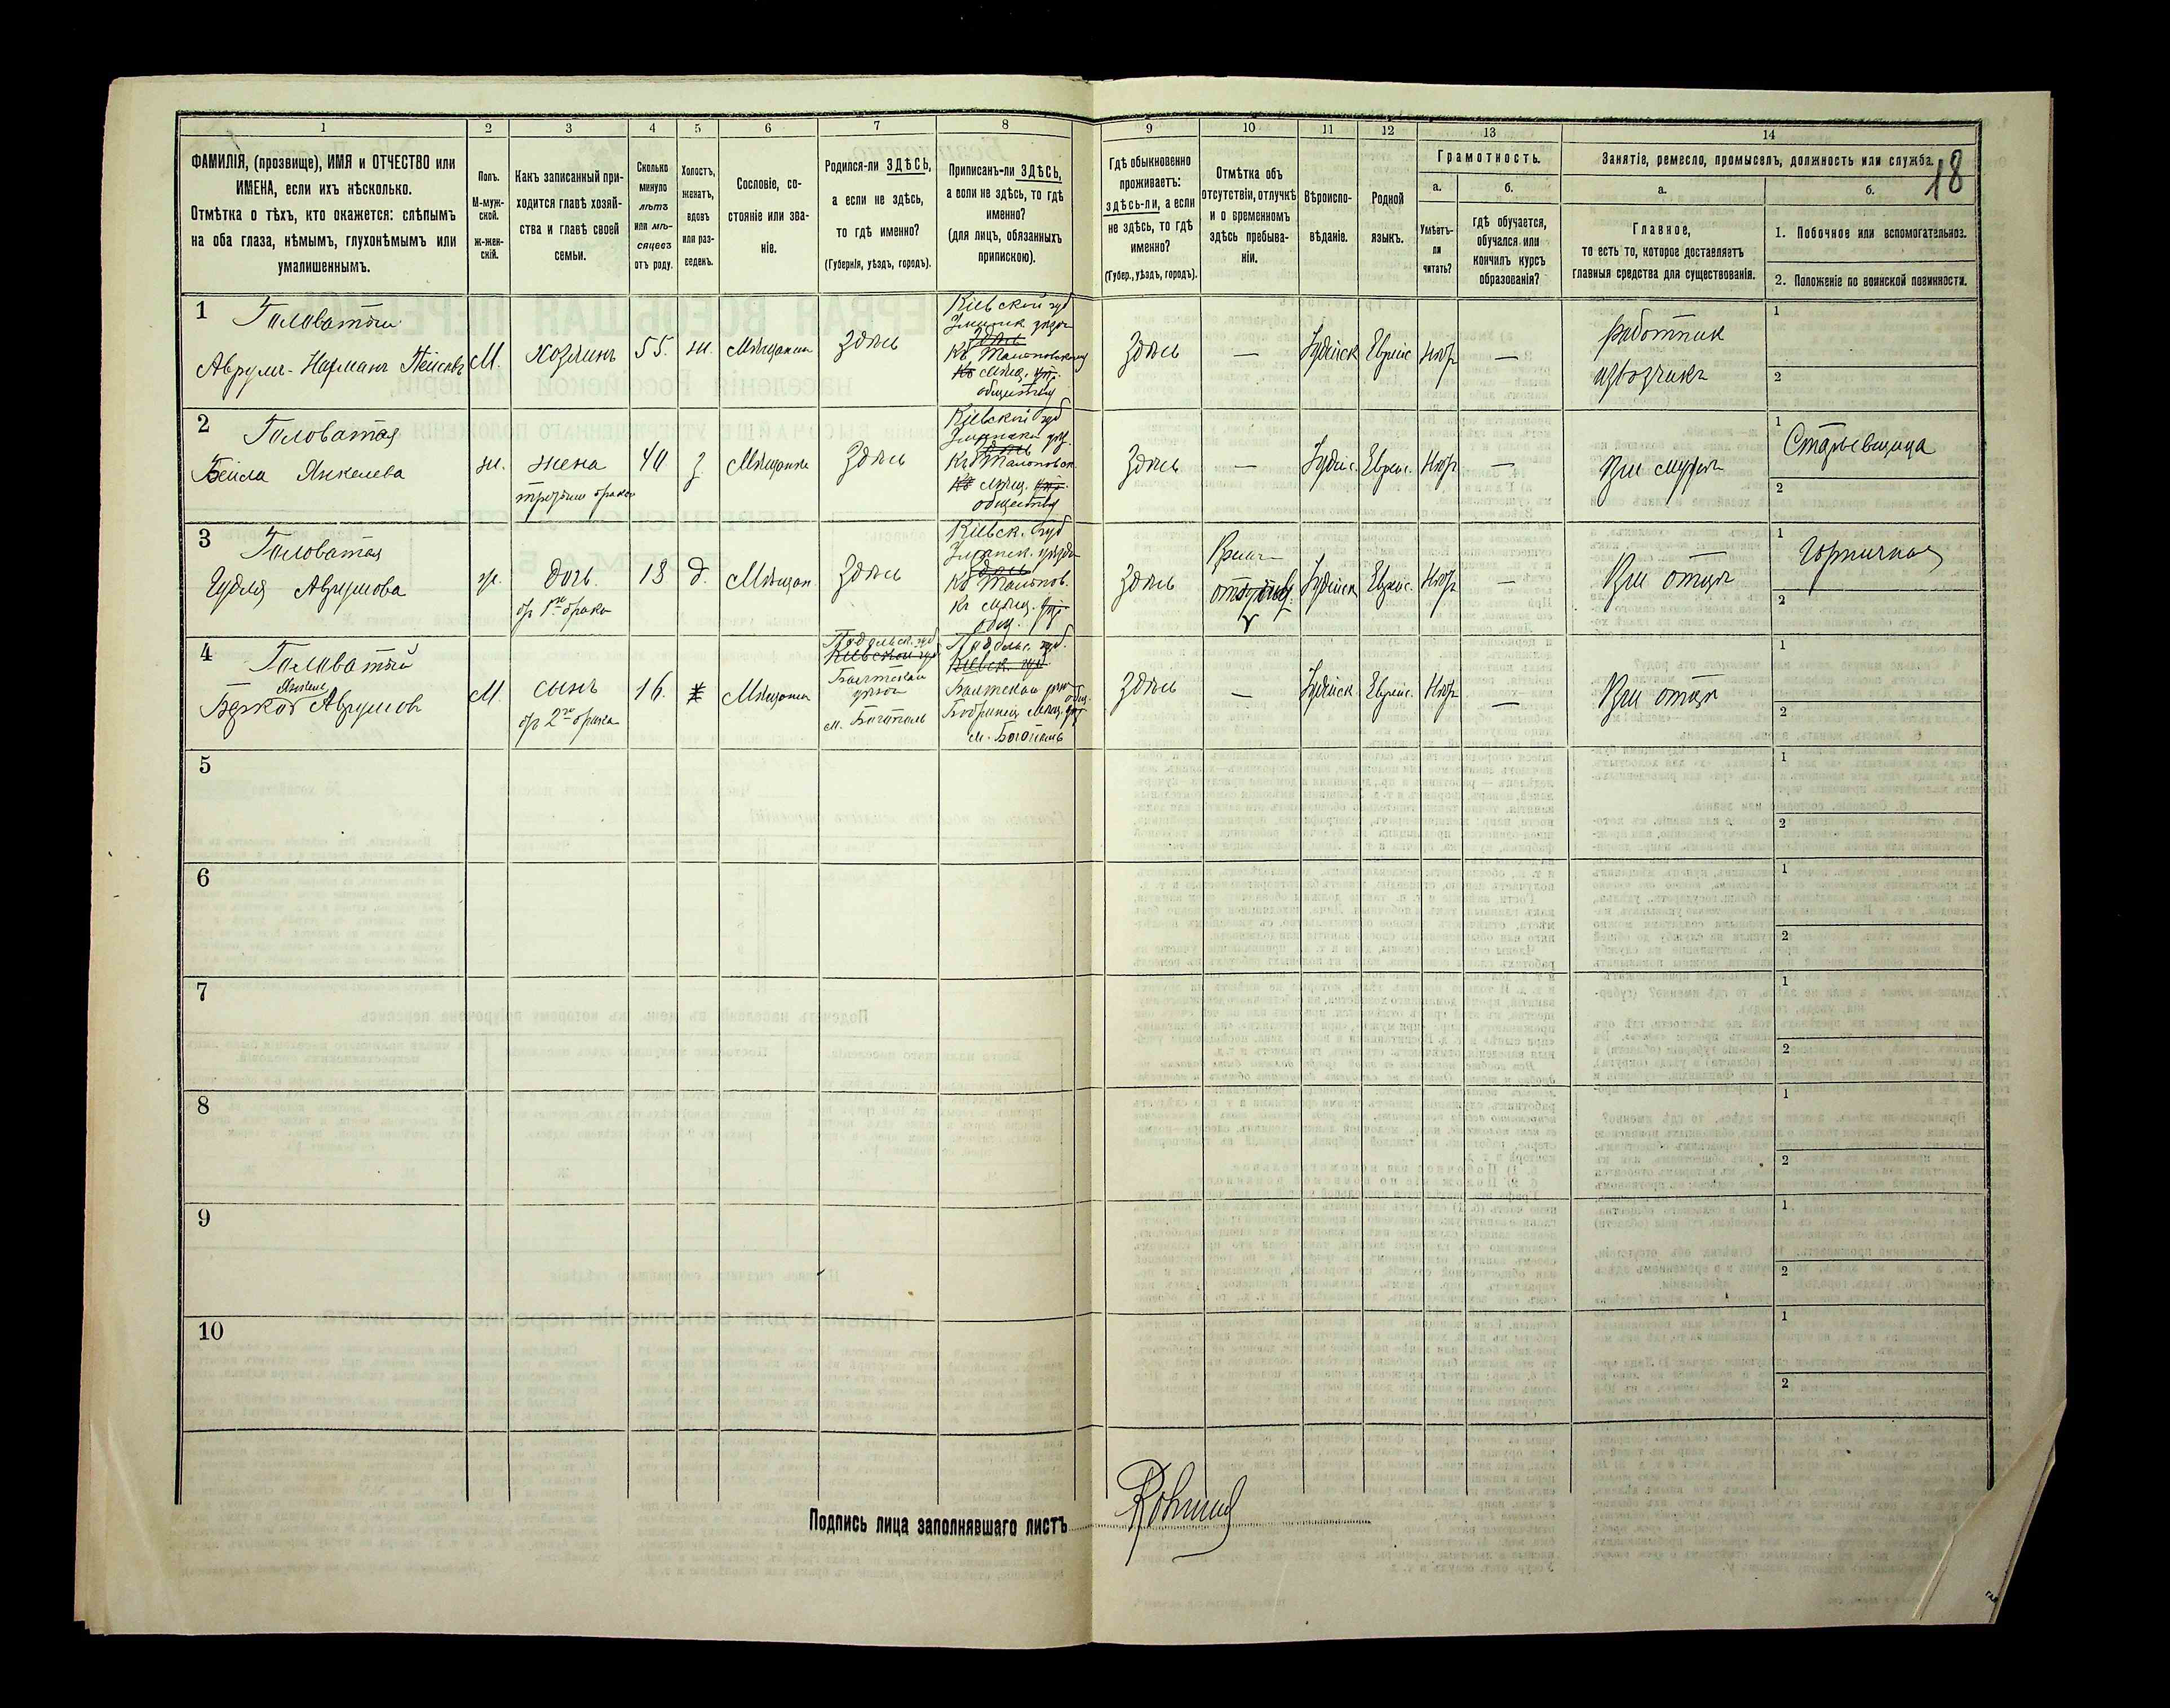 1 2 3 4 5 6 7 8 9 10 11 12 13 14
18
ФАМИЛІЯ, (прозвище), ИМЯ и ОТЧЕСТВО или
ИМЕНА, если ихъ нѣсколько.
Отмѣтка о тѣхъ, кто окажется: слѣпымъ
на оба глаза, нѣмымъ, глухонѣмымъ или
умалишеннымъ.
Полъ.
М-муж-
ской.
ж-жен-
скій.
Какъ записанный при-
ходится главѣ хозяй-
ства и главѣ своей
семьи.
Сколько
минуло
лѣтъ
или мѣ-
сяцевъ
отъ роду.
Холостъ,
женатъ,
вдовъ
или раз-
веденъ.
Сословіе, со-
стояніе или зва-
ніе.
Родился-ли ЗДѢСЬ,
а если не здѣсь,
то гдѣ именно?
(Губернія, уѣздъ, городъ).
Приписанъ-ли ЗДѢСЬ,
а если не здѣсь, то гдѣ
именно?
(для лицъ, обязанныхъ
припискою).
Гдѣ обыкновенно
проживаетъ:
здѣсь-ли, а если
не здѣсь, то гдѣ
именно?
(Губер., уѣздъ, городъ).
Отмѣтка объ
отсутствіи, отлучкѣ
и о временномъ
здѣсь пребыва-
ніи.
Вѣроиспо-
вѣданіе.
Родной
языкъ.
Грамотность.
а.
Умѣетъ-
ли
читать?
б.
Гдѣ обучается,
обучался или
кончилъ курсъ
образованія?
Занятіе, ремесло, промыселъ, должность или служба.
а.
Главное,
то есть то, которое доставляетъ
главныя средства для существованія.
б.
1. Побочное или вспомогательное.
2. Положеніе по воинской повинности.
1
Головатый
Аврумъ-Нахманъ Пейсовъ
М.
хозяинъ
55.
ж.
Мѣщанин
Здѣсь
Кіевской губ
здѣсь
обществу
Здѣсь
—
Іудейск
Еврейс
—
работник
извозчикъ
1
2
2
Головатая
Бейла Янкелева
ж.
жена
40
з.
Мѣщанка
Здѣсь
Кіевской губ
здѣсь
обществу
Здѣсь
—
Іудейс.
Еврейс.
—
При мужѣ
1
2
3
Головатая
Авrумова
ж.
дочь.
18
д.
Мѣщан.
Здѣсь
Кіевск. губ
здѣсь
общ.
Здѣсь
Іудейск
Еврейс.
—
При отцѣ
1
Горничная
2
4
Головатый
Берко Аврумов
М.
сынъ
16.
Мѣщанин
Подольск. губ
Кіевской губ
Балтскаго
м. Богополь
Подольс. губ.
Кіевск. губ.
м. Богополь
Здѣсь
—
Іудейск.
Еврейс.
—
При отцѣ
1
2
5
1
2
6
1
2
7
1
2
8
1
2
9
1
2
10
1
2
Подпись лица заполнявшаго листъ